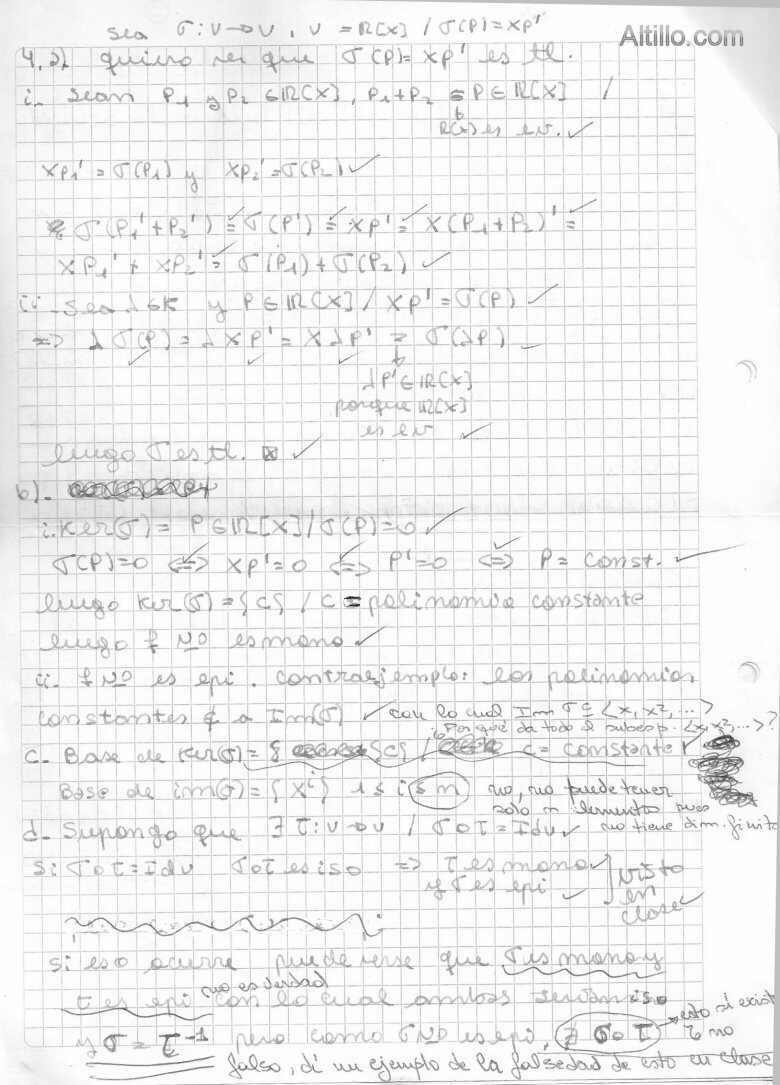 sea σ: V→V, V = R[X] / σ(P)=XP'
Altillo.com
4.a) quiero ver que σ(P)= XP' es tl.
i- sean P₁ y P₂ ∈ R[X], P₁+P₂ = P ∈ R[X] /
R[X] es ev. ✓
XP₁' = σ(P₁) y XP₂' = σ(P₂) ✓
σ(P₁'+P₂') = σ(P') = XP' = X(P₁+P₂)' =
XP₁' + XP₂' = σ(P₁) + σ(P₂) ✓
ii- Sea λ∈K y P ∈ R[X] / XP' = σ(P) ✓
=> λ σ(P) = λ XP' = X λP' = σ(λP)
λP' ∈ R[X]
porque R[X]
es ev ✓
luego σ es tl. ✓
b)-
i. Ker(σ) = P ∈ R[X] / σ(P)=0 ✓
σ(P)=0 <=> XP'=0 <=> P'=0 <=> P = const. ✓
luego Ker(σ) = {C} / C = polinomio constante
luego f NO es mono ✓
ii- f NO es epi. contraejemplo: los polinomios
constantes ∉ a Im(σ) ✓ con lo cual Im σ ⊆ <x, x², ...>
¿Por qué da todo el subesp. <x, x², ...>?
c- Base de Ker(σ) = { {C} / C = constante
Base de im(σ) = {X^i} 1 ≤ i ≤ n no, no puede tener
solo n elementos pues
no tiene dim. finita
d- Supongo que ∃ τ: V→V / σ∘τ = Idv ✓
si σ∘τ = Idv σ∘τ es iso => τ es mono ✓
y σ es epi ✓
visto
en
clase
si eso ocurre puede verse que σ es mono y
no es verdad
τ es epi con lo cual ambos serían iso
y σ = τ⁻¹ pero como σ NO es epi, ∄ σ∘τ
esto sí existe
τ no
falso, di un ejemplo de la falsedad de esto en clase